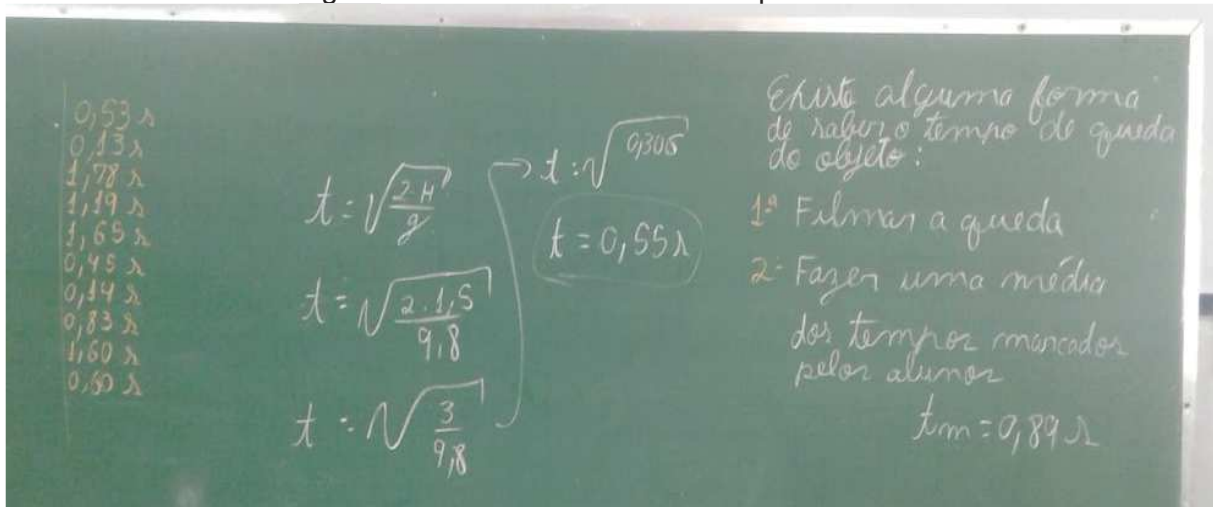 0,53 s
0,13 s
1,78 s
1,19 s
1,65 s
0,45 s
0,14 s
0,83 s
1,60 s
0,60 s
t = √(2·H/g)
t = √(2·1,5/9,8)
t : √(3/9,8)
→ t : √0,306
t = 0,55 s
Existe alguma forma
de saber o tempo de queda
do objeto :
1ª Filmar a queda
2- Fazer uma média
dos tempos marcados
pelos alunos
tm = 0,89 s